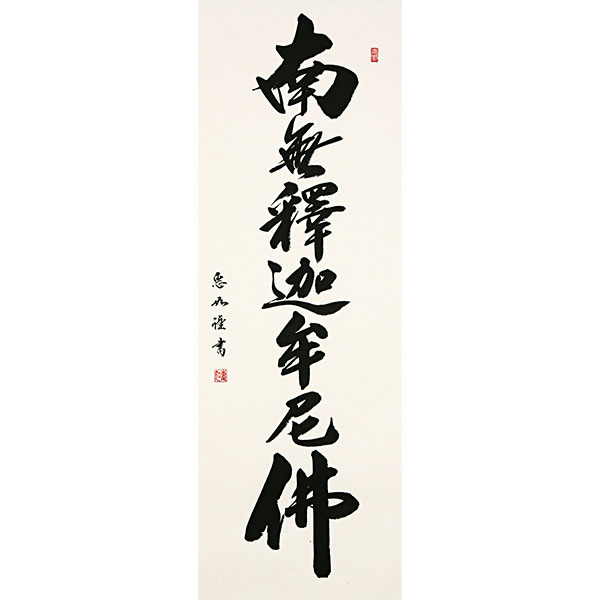 南無釋迦牟尼佛
謹書